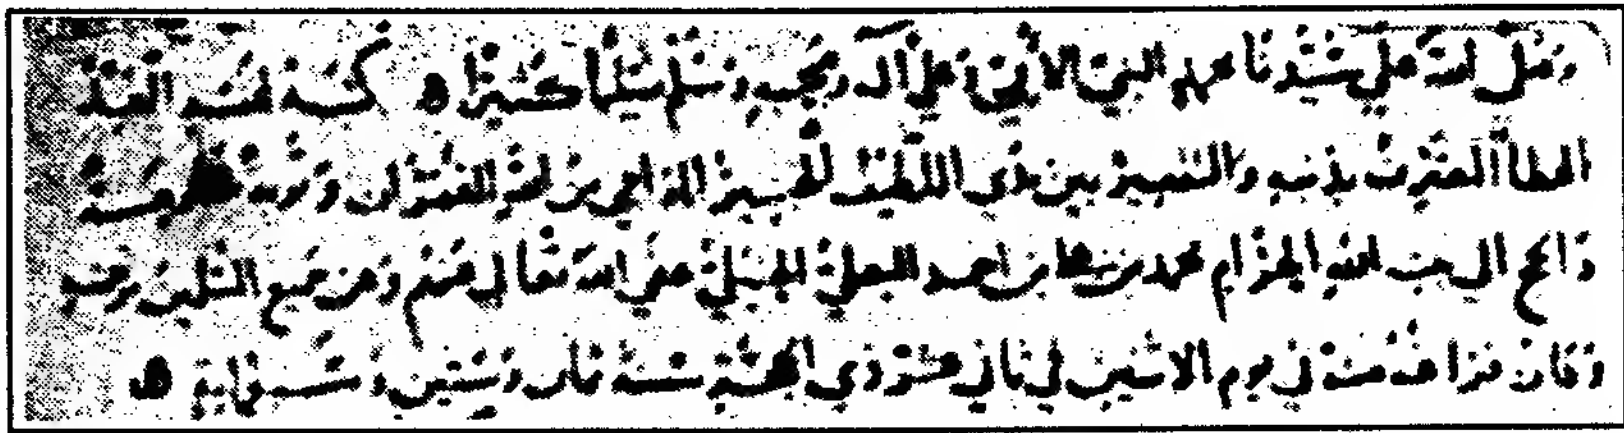 وصلى الله على سيدنا محمد النبي الأمي وعلى آله وصحبه وسلم تسليما كثيرا ه كتبه لنفسه العبد
الخطأ المعترف بذنبه والتقصير بين يدي اللطيف الخبير الراجي من الله الغفران وتوبة
والحج إلى بيت الله الحرام محمد بن بن احمد البعلي الحنبلي عفى الله تعالى عنهم وعن جميع المسلمين
وكان فراغه منه في يوم الاثنين في ثاني عشر ذي الحجة سنة ثمان وستين وستمائة ه